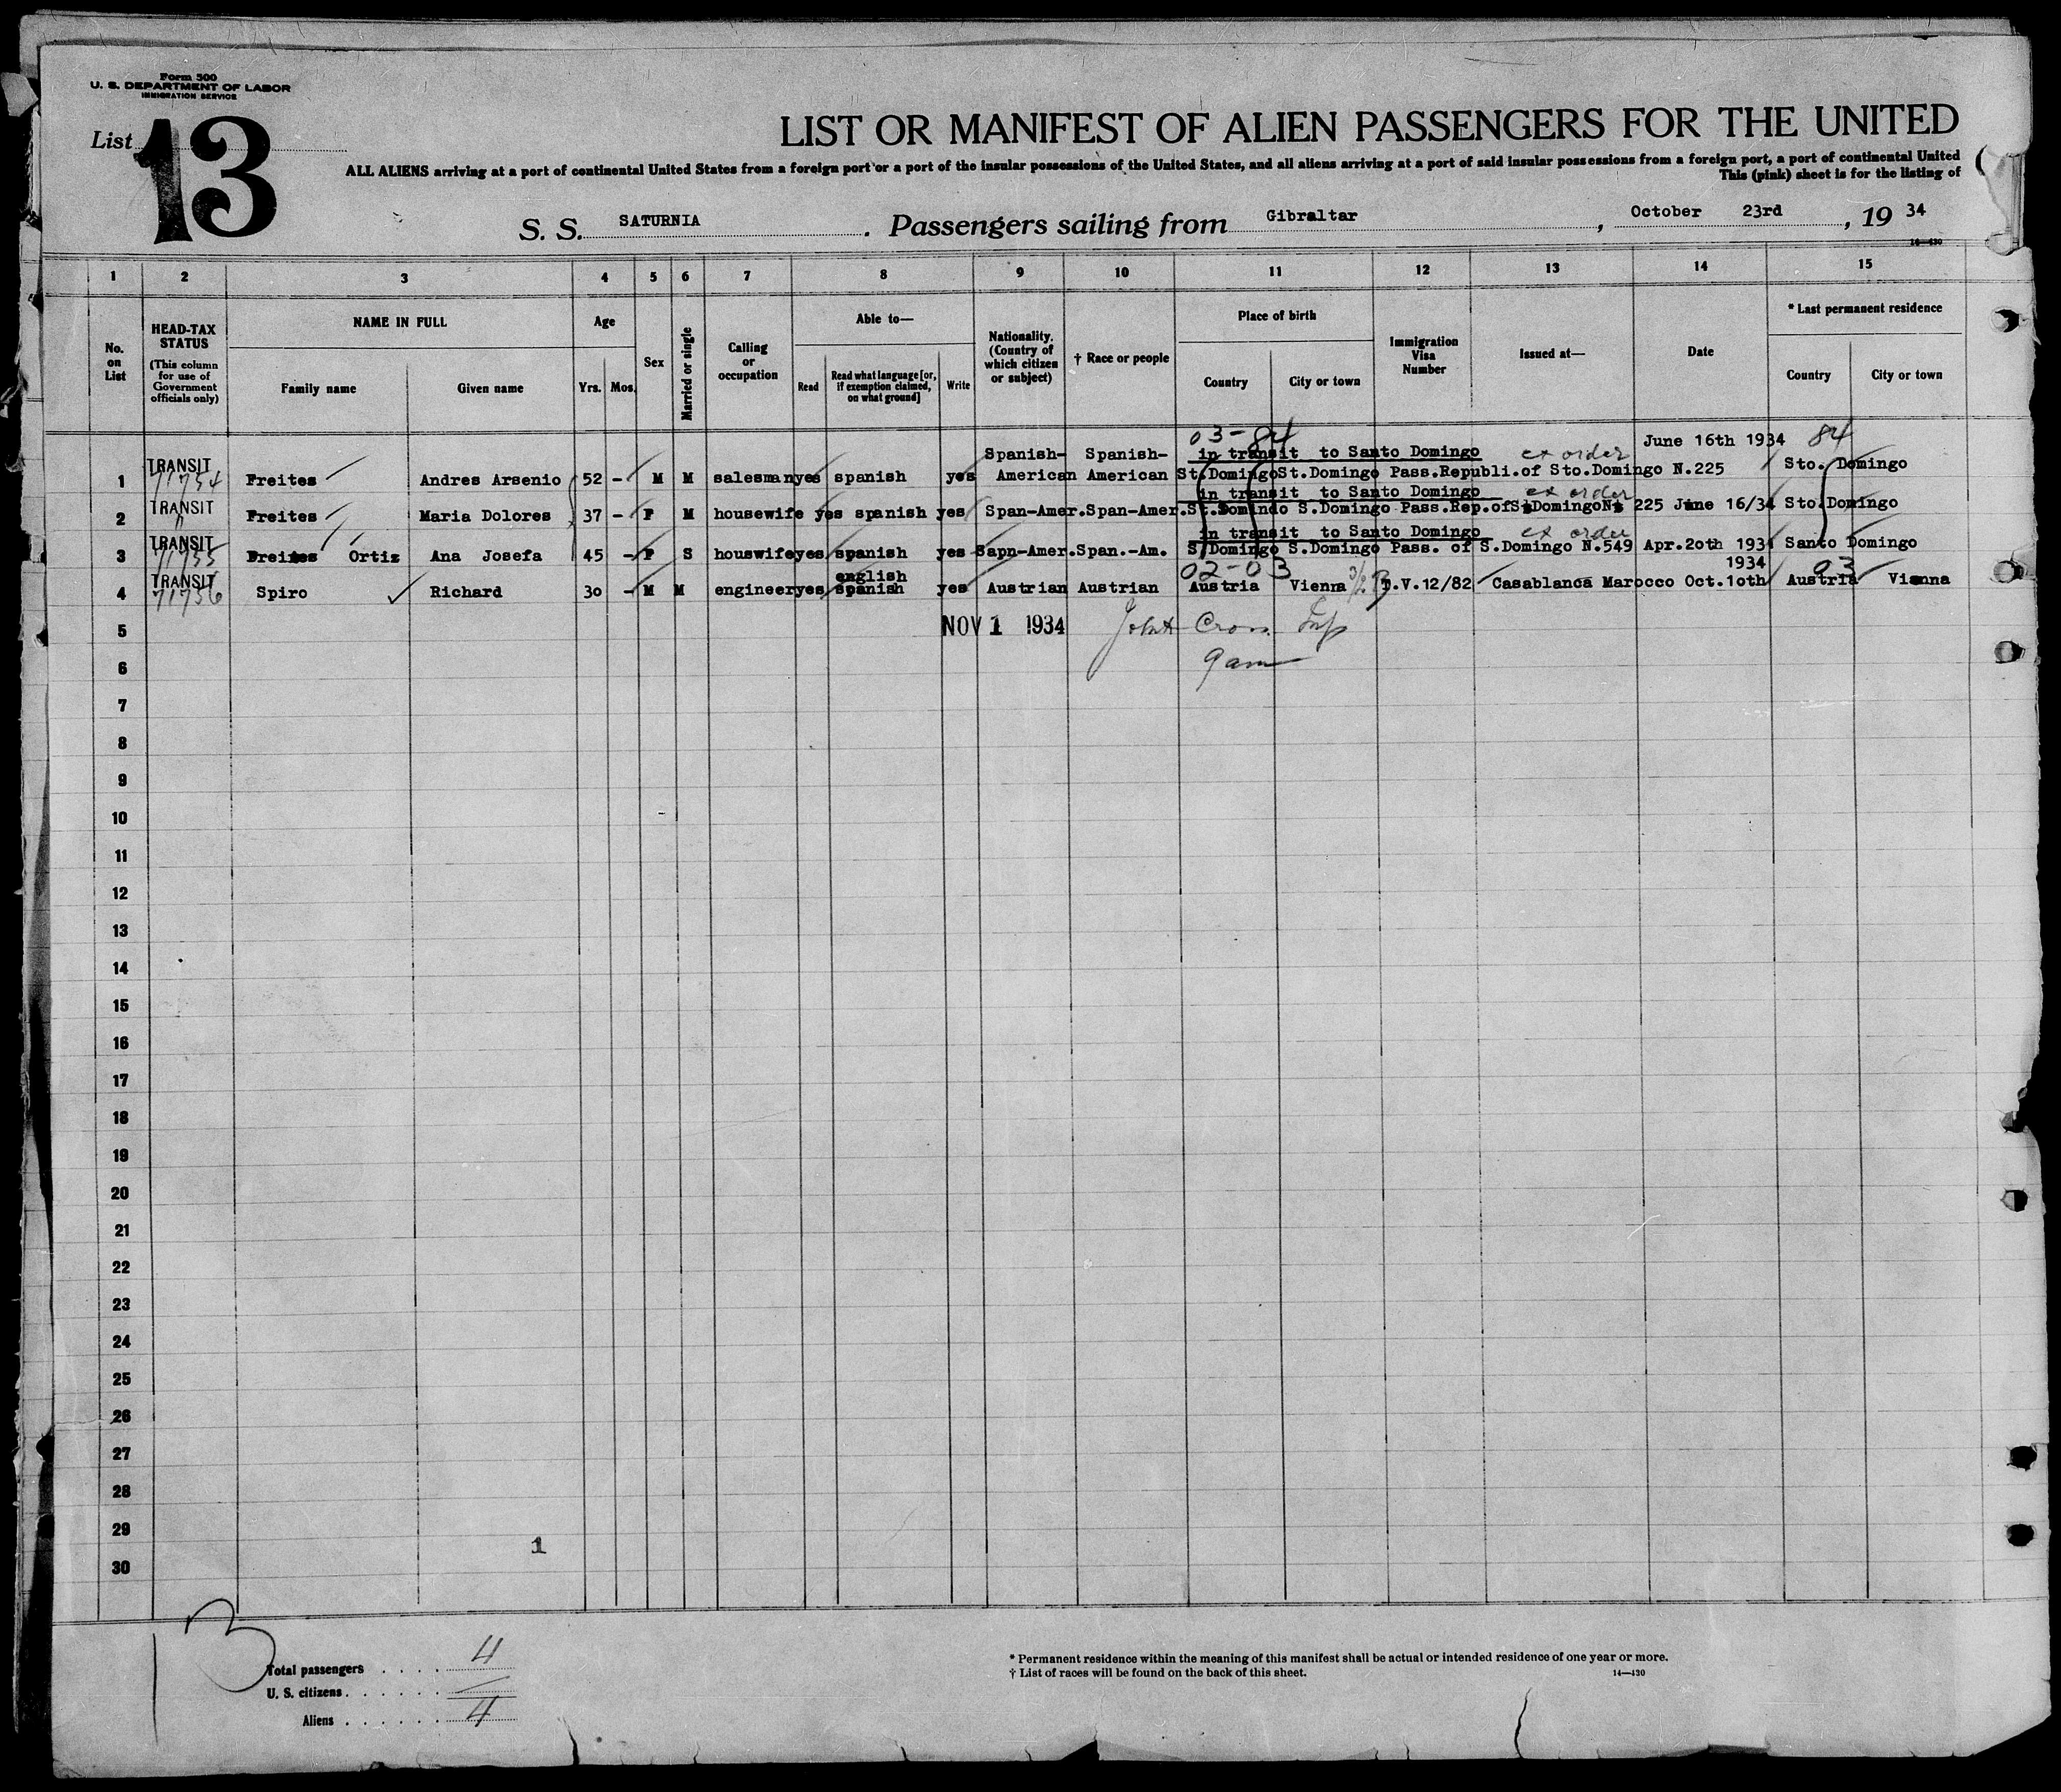 Form 500
U. S. DEPARTMENT OF LABOR
IMMIGRATION SERVICE
List 13
LIST OR MANIFEST OF ALIEN PASSENGERS FOR THE UNITED
ALL ALIENS arriving at a port of continental United States from a foreign port or a port of the insular possessions of the United States, and all aliens arriving at a port of said insular possessions from a foreign port, a port of continental United
This (pink) sheet is for the listing of
S. S. SATURNIA . Passengers sailing from Gibraltar , October 23rd , 19 34
14—430
1 2 3 4 5 6 7 8 9 10 11 12 13 14 15
No. on List
HEAD-TAX STATUS
(This column for use of Government officials only)
NAME IN FULL
Family name Given name
Age
Yrs. Mos.
Sex
Married or single
Calling or occupation
Able to—
Read
Read what language [or, if exemption claimed, on what ground]
Write
Nationality. (Country of which citizen or subject)
† Race or people
Place of birth
Country City or town
Immigration Visa Number
Issued at—
Date
* Last permanent residence
Country City or town
03-84 June 16th 1934 84
Spanish- Spanish- in transit to Santo Domingo ex order
1 TRANSIT 71754 Freites Andres Arsenio 52 - M M salesman yes spanish yes American American St.Domingo St.Domingo Pass.Republi.of Sto.Domingo N.225 Sto. Domingo
in transit to Santo Domingo ex order
2 TRANSIT " Freites Maria Dolores 37 - F M housewife yes spanish yes Span-Amer. Span-Amer. St.Domindo S.Domingo Pass.Rep.of StDomingoN: 225 June 16/34 Sto.Domingo
in transit to Santo Domingo ex order
3 TRANSIT 71755 Freites Ortiz Ana Josefa 45 - F S houswife yes spanish yes Sapn-Amer. Span.-Am. S.Domingo S.Domingo Pass. of S.Domingo N.549 Apr.2oth 1934 Santo Domingo
english 02-03 1934 03
4 TRANSIT 71756 Spiro Richard 30 - M M engineer yes spanish yes Austrian Austrian Austria Vienna T.V.12/82 Casablanca Marocco Oct.1oth Austria Vienna
5 NOV 1 1934 John Cross Insp
6 9 am
7
8
9
10
11
12
13
14
15
16
17
18
19
20
21
22
23
24
25
26
27
28
29
1
30
13
Total passengers . . . . 4
U. S. citizens . . . . . .
Aliens . . . . . . 4
* Permanent residence within the meaning of this manifest shall be actual or intended residence of one year or more.
† List of races will be found on the back of this sheet. 14—430